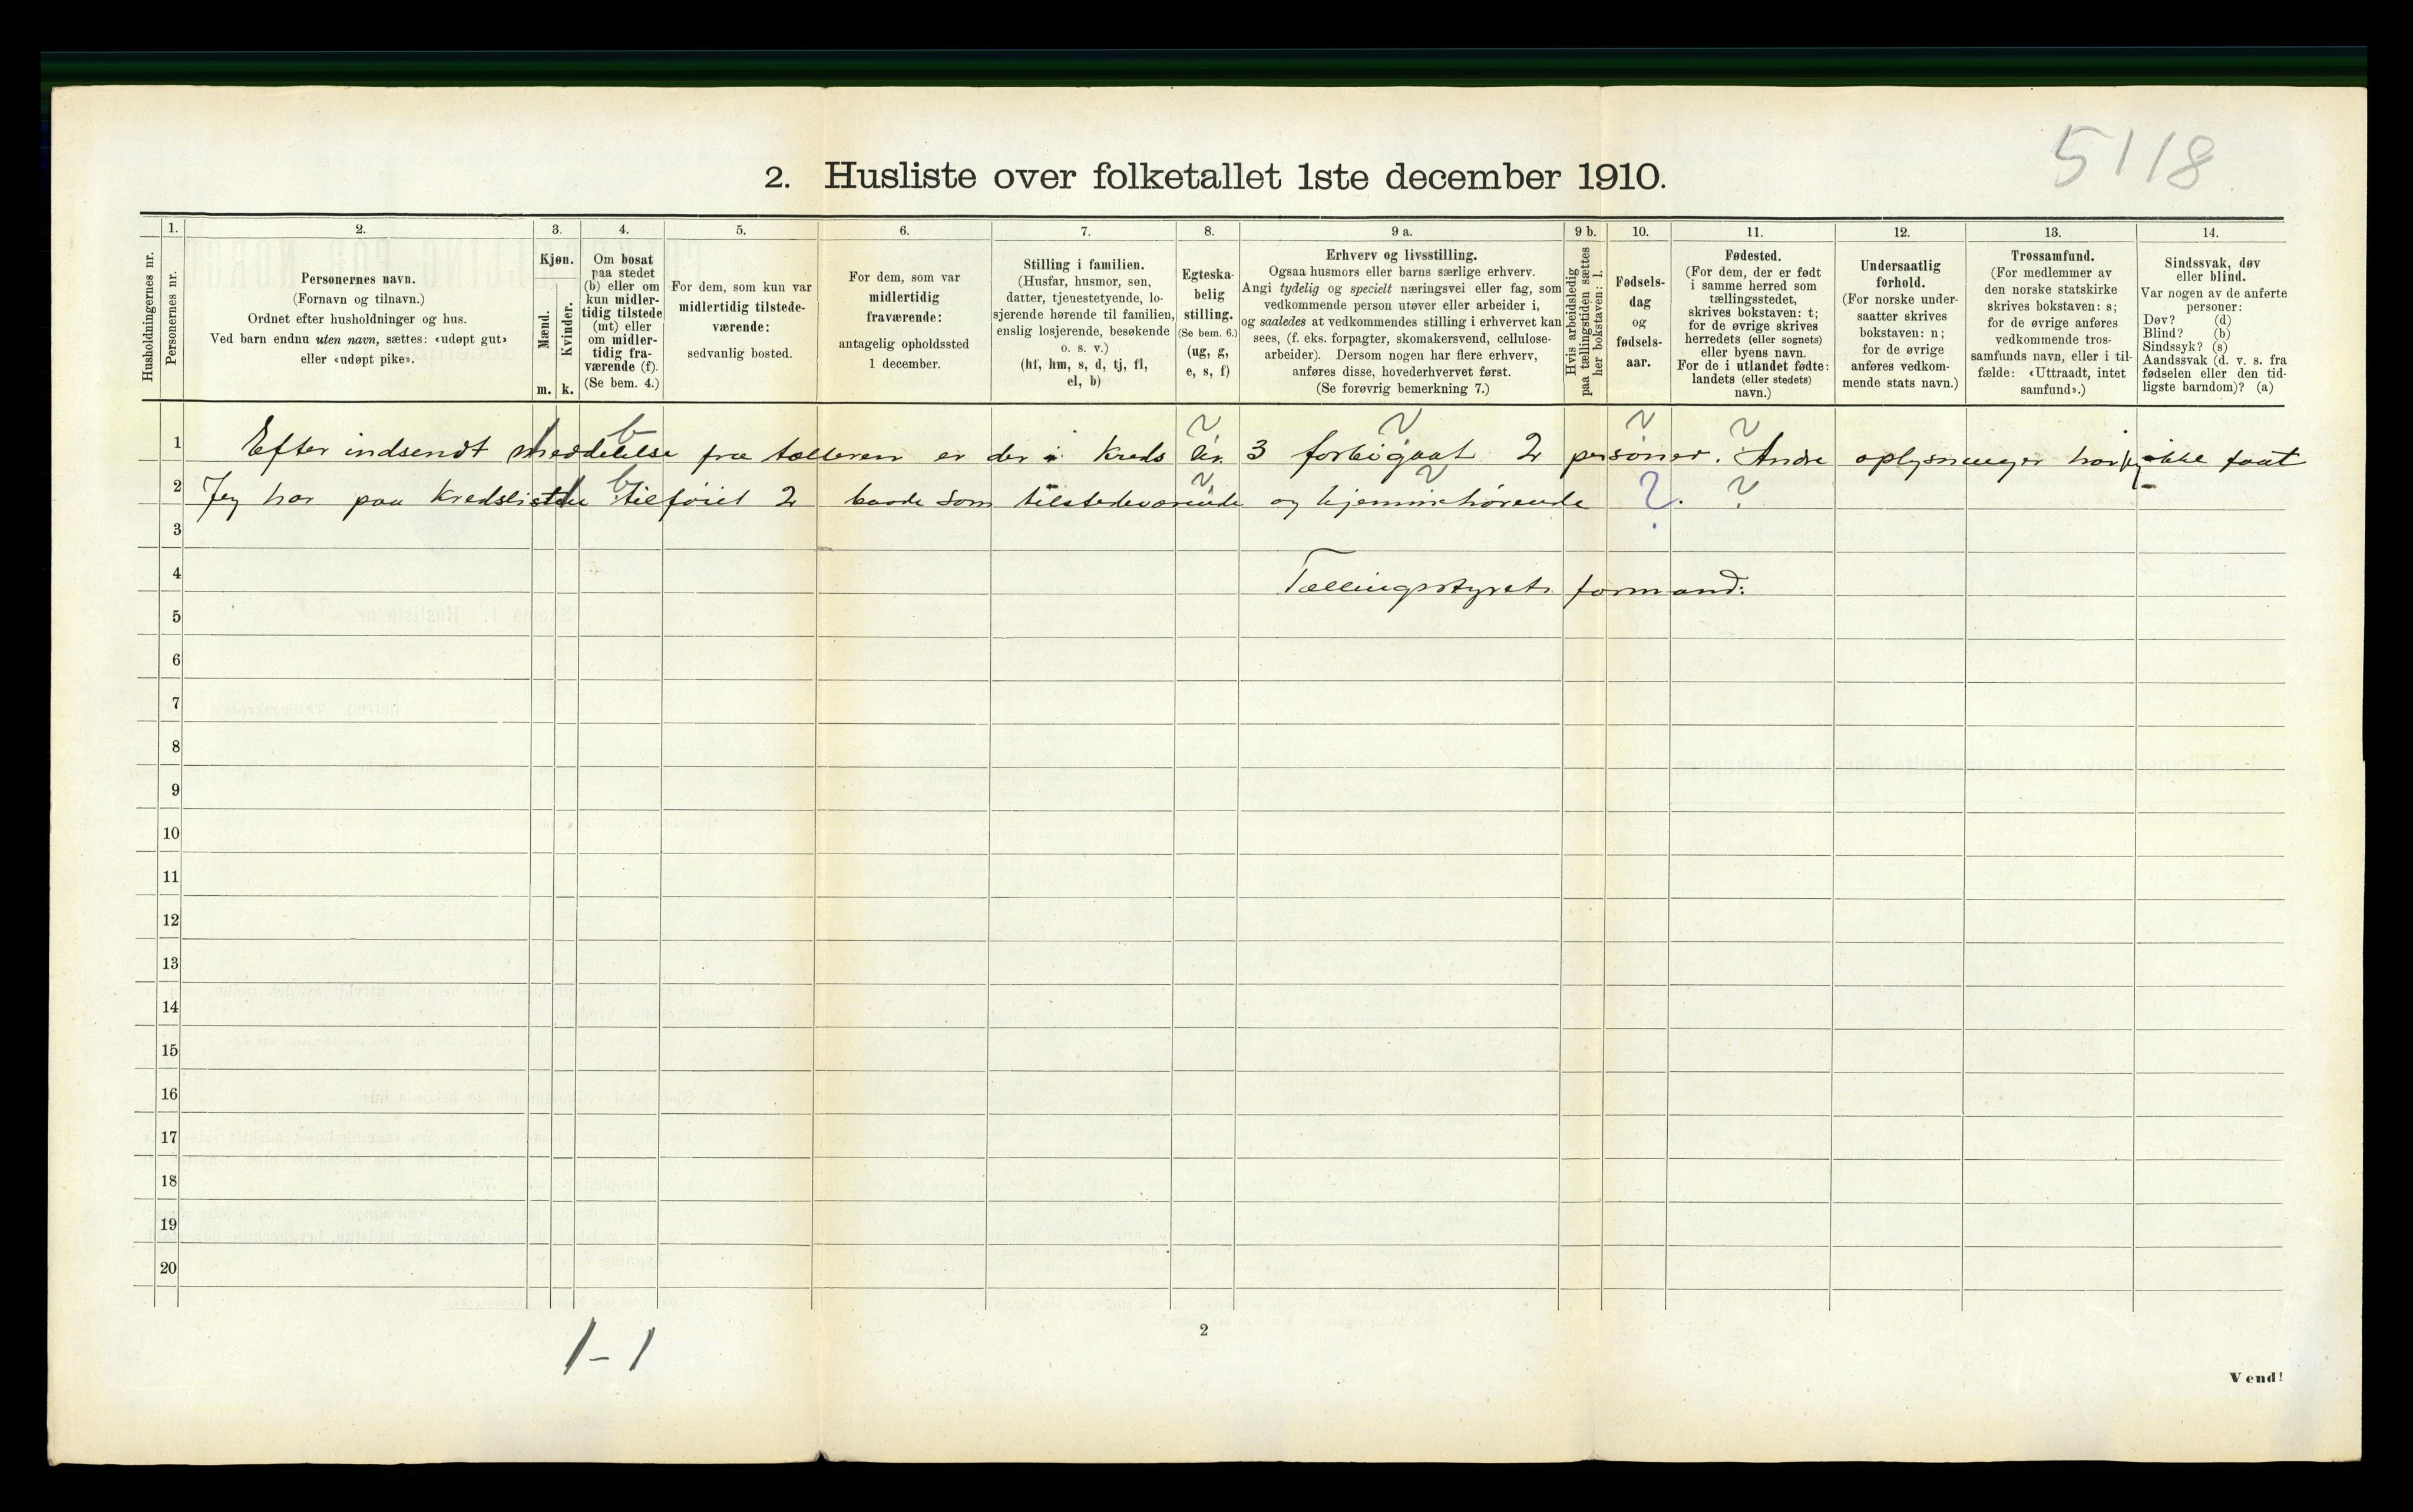 5118
2. Husliste over folketallet 1ste december 1910.
Husholdningernes nr.
1.
Personernes nr.
2.
Personernes navn.
(Fornavn og tilnavn.)
Ordnet efter husholdninger og hus.
Ved barn endnu uten navn, sættes: «udøpt gut»
eller «udøpt pike».
3.
Kjøn.
Mænd.
m.
Kvinder.
k.
4.
Om bosat
paa stedet
(b) eller om
kun midler-
tidig tilstede
(mt) eller
om midler-
tidig fra-
værende (f).
(Se bem. 4.)
5.
For dem, som kun var
midlertidig tilstede-
værende:
sedvanlig bosted.
6.
For dem, som var
midlertidig
fraværende:
antagelig opholdssted
1 december.
7.
Stilling i familien.
(Husfar, husmor, søn,
datter, tjenestetyende, lo-
sjerende hørende til familien,
enslig losjerende, besøkende
o. s. v.)
(hf, hm, s, d, tj, fl,
el, b)
8.
Egteska-
belig
stilling.
(Se bem. 6.)
(ug, g,
e, s, f)
9 a.
Erhverv og livsstilling.
Ogsaa husmors eller barns særlige erhverv.
Angi tydelig og specielt næringsvei eller fag, som
vedkommende person utøver eller arbeider i,
og saaledes at vedkommendes stilling i erhvervet kan
sees, (f. eks. forpagter, skomakersvend, cellulose-
arbeider). Dersom nogen har flere erhverv,
anføres disse, hovederhvervet først.
(Se forøvrig bemerkning 7.)
9 b.
Hvis arbeidsledig
paa tællingstiden sættes
her bokstaven: l.
10.
Fødsels-
dag
og
fødsels-
aar.
11.
Fødested.
(For dem, der er født
i samme herred som
tællingsstedet,
skrives bokstaven: t;
for de øvrige skrives
herredets (eller sognets)
eller byens navn.
For de i utlandet fødte:
landets (eller stedets)
navn.)
12.
Undersaatlig
forhold.
(For norske under-
saatter skrives
bokstaven: n;
for de øvrige
anføres vedkom-
mende stats navn.)
13.
Trossamfund.
(For medlemmer av
den norske statskirke
skrives bokstaven: s;
for de øvrige anføres
vedkommende tros-
samfunds navn, eller i til-
fælde: «Uttraadt, intet
samfund».)
14.
Sindssvak, døv
eller blind.
Var nogen av de anførte
personer:
Døv? (d)
Blind? (b)
Sindssyk? (s)
Aandssvak (d. v. s. fra
fødselen eller den tid-
ligste barndom)? (a)
1 Efter indsendt meddelelse fra tælleren er der i Kreds 3 forbigaat 2 personer. Andre oplysninger har jeg ikke faat
b
2 Jeg har paa Kredslisten tilføiet 2 baade som tilstedeværende og hjemmehørende ?. ?
b
3
4 Tællingsstyrets formand:
5
6
7
8
9
10
11
12
13
14
15
16
17
18
19
20
1 - 1
2
Vend!